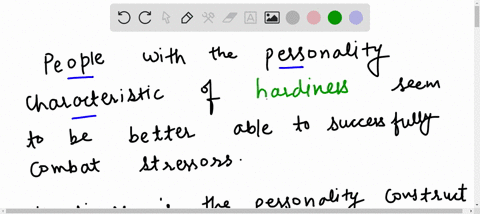 People with the personality
characteristic of hardiness seem
to be better able to successfully
combat stressors.
the personality construct